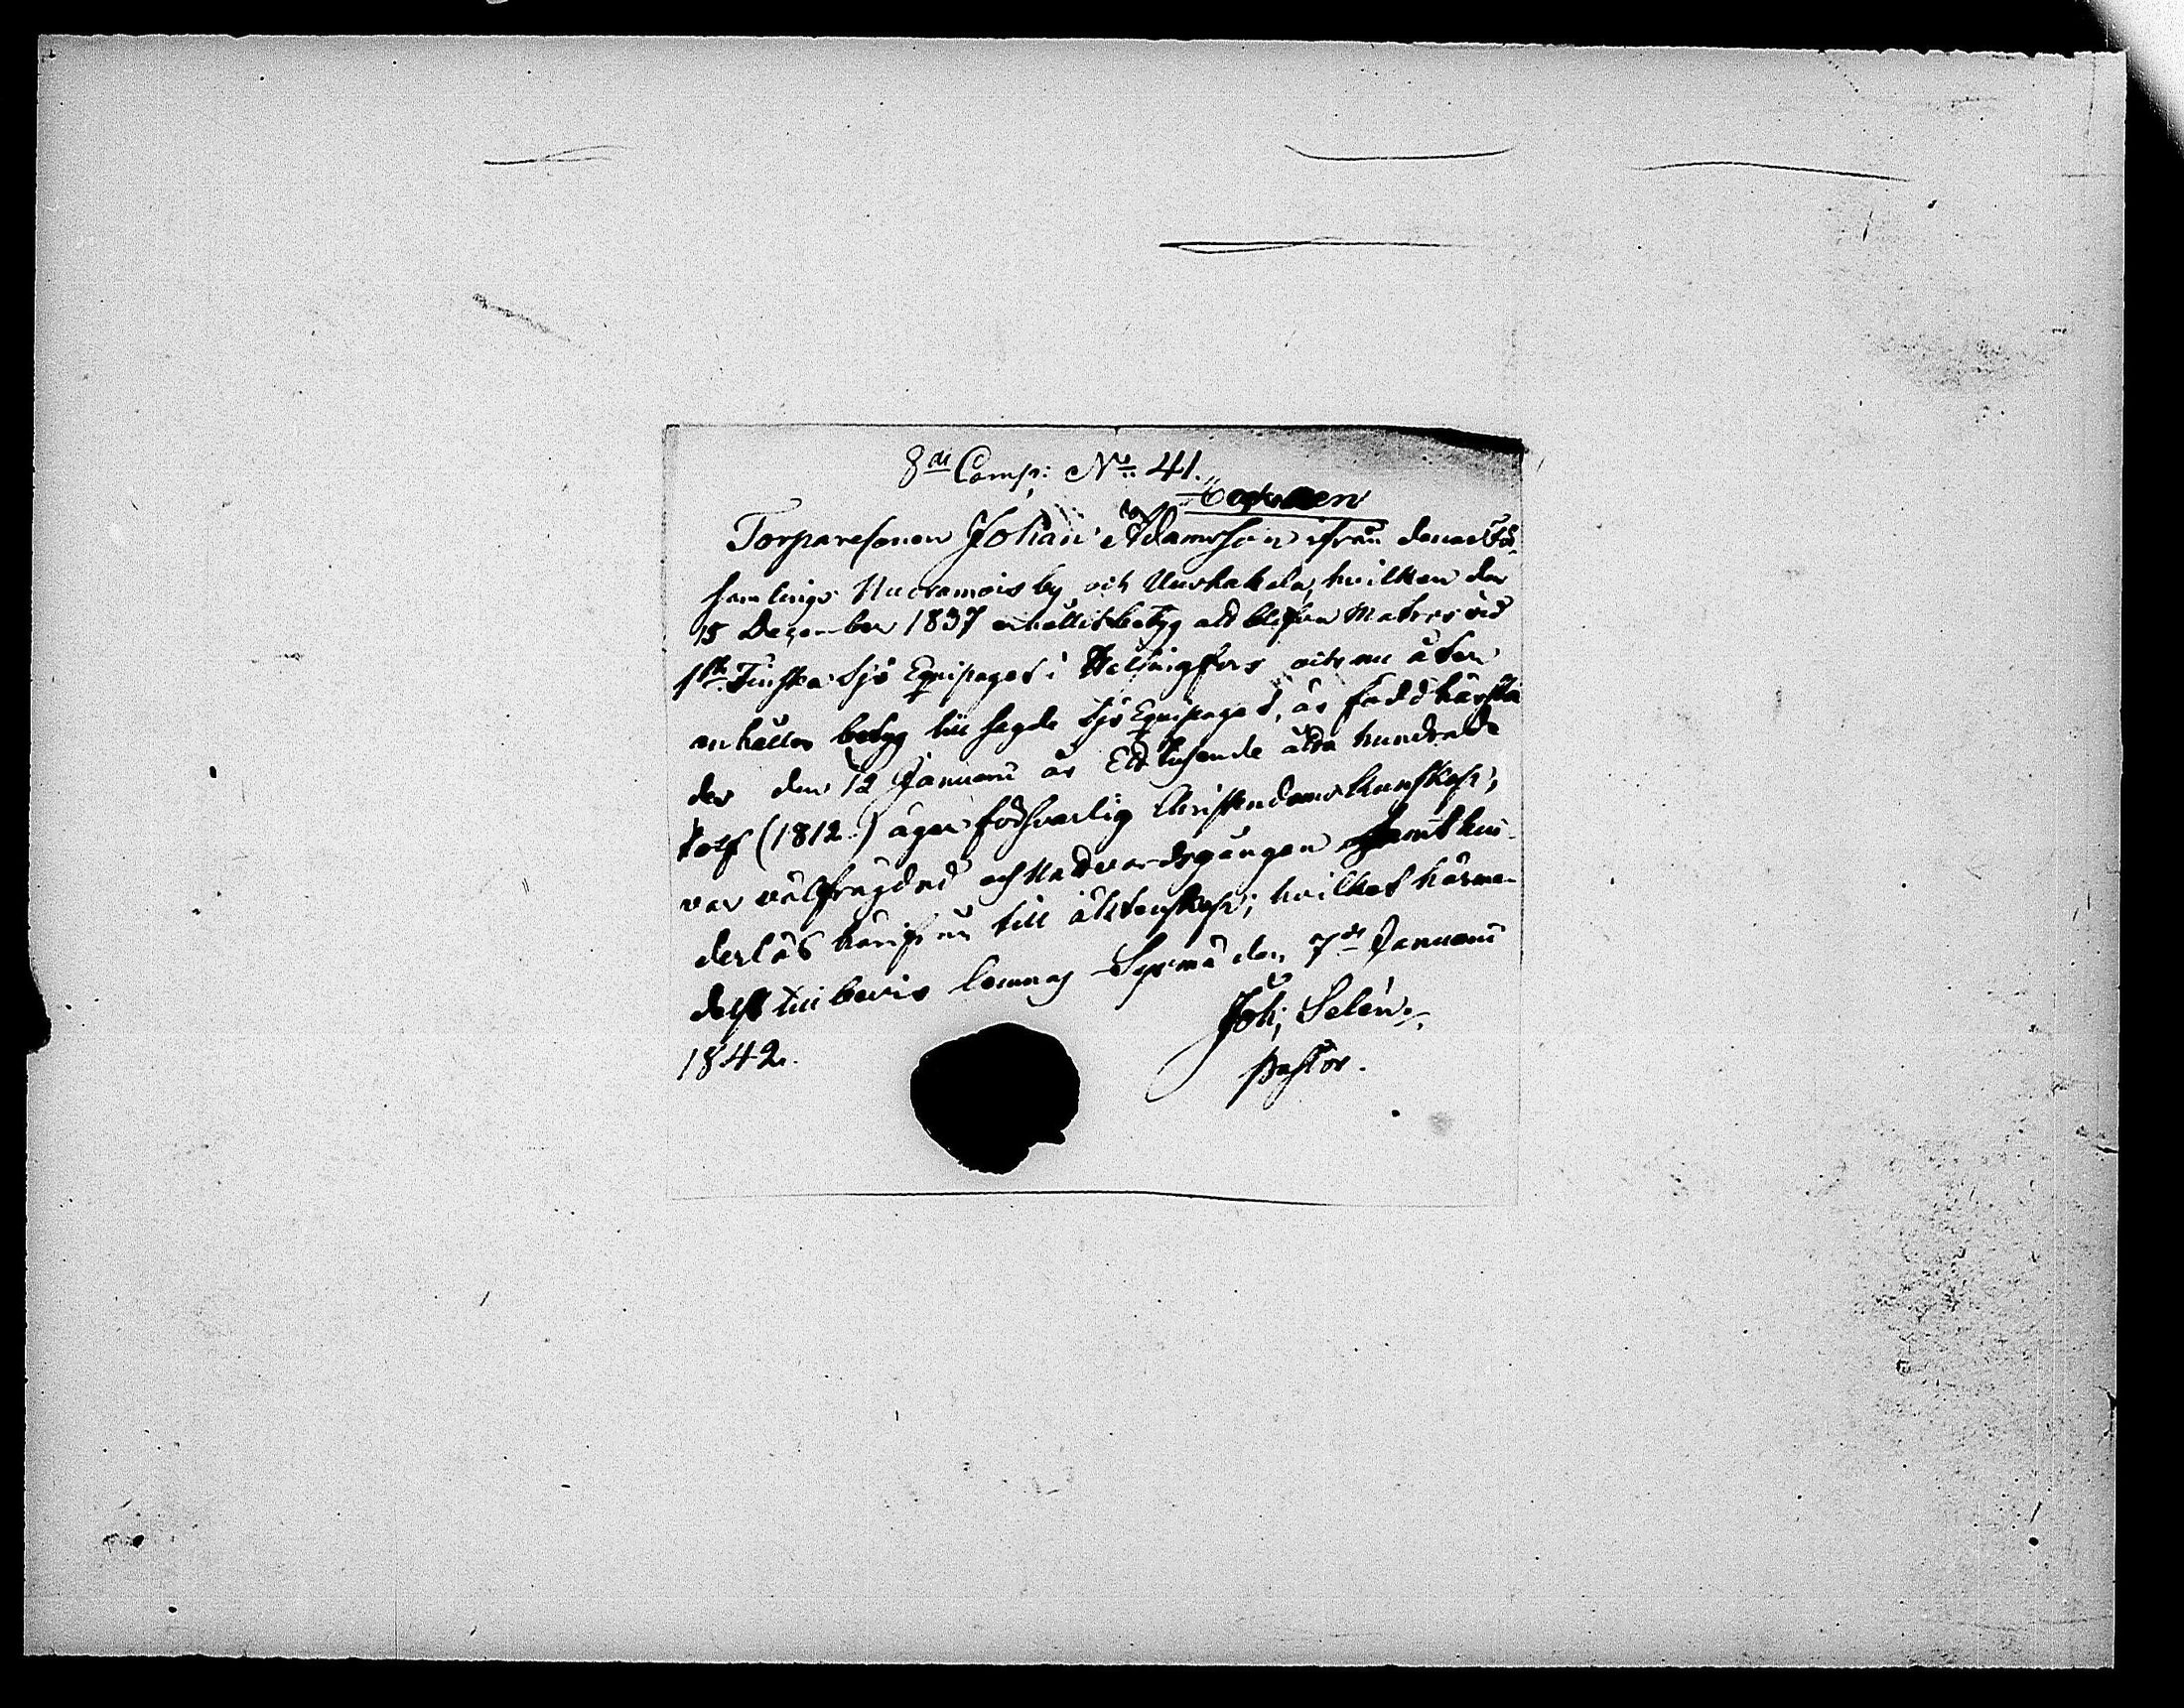 8de Comp: No: 41.
Torparesonen Johan Adamsson ifrån denna För-
samlings Nuoramois by och Uushakala, hvilken den
15 December 1837 erhållit betyg att blifva Matros vid
1sta Finska Sjö Equipaget i Helsingfors och nu åter
anhåller betyg till sagde Sjö Equipaget, är född härstä-
des den 12 Januarii år Ett tusende åtta hundrade
tolf (1812.) äger försvarlig Christendoms kunskap,
var välfrägdad och Nattvardsgången samt hin-
derlös härifrån till äktenskap; hvilket härme-
delst till bevis lemnas Sysmä den 7de Januarii
1842.
Joh: Selén
Pastor.